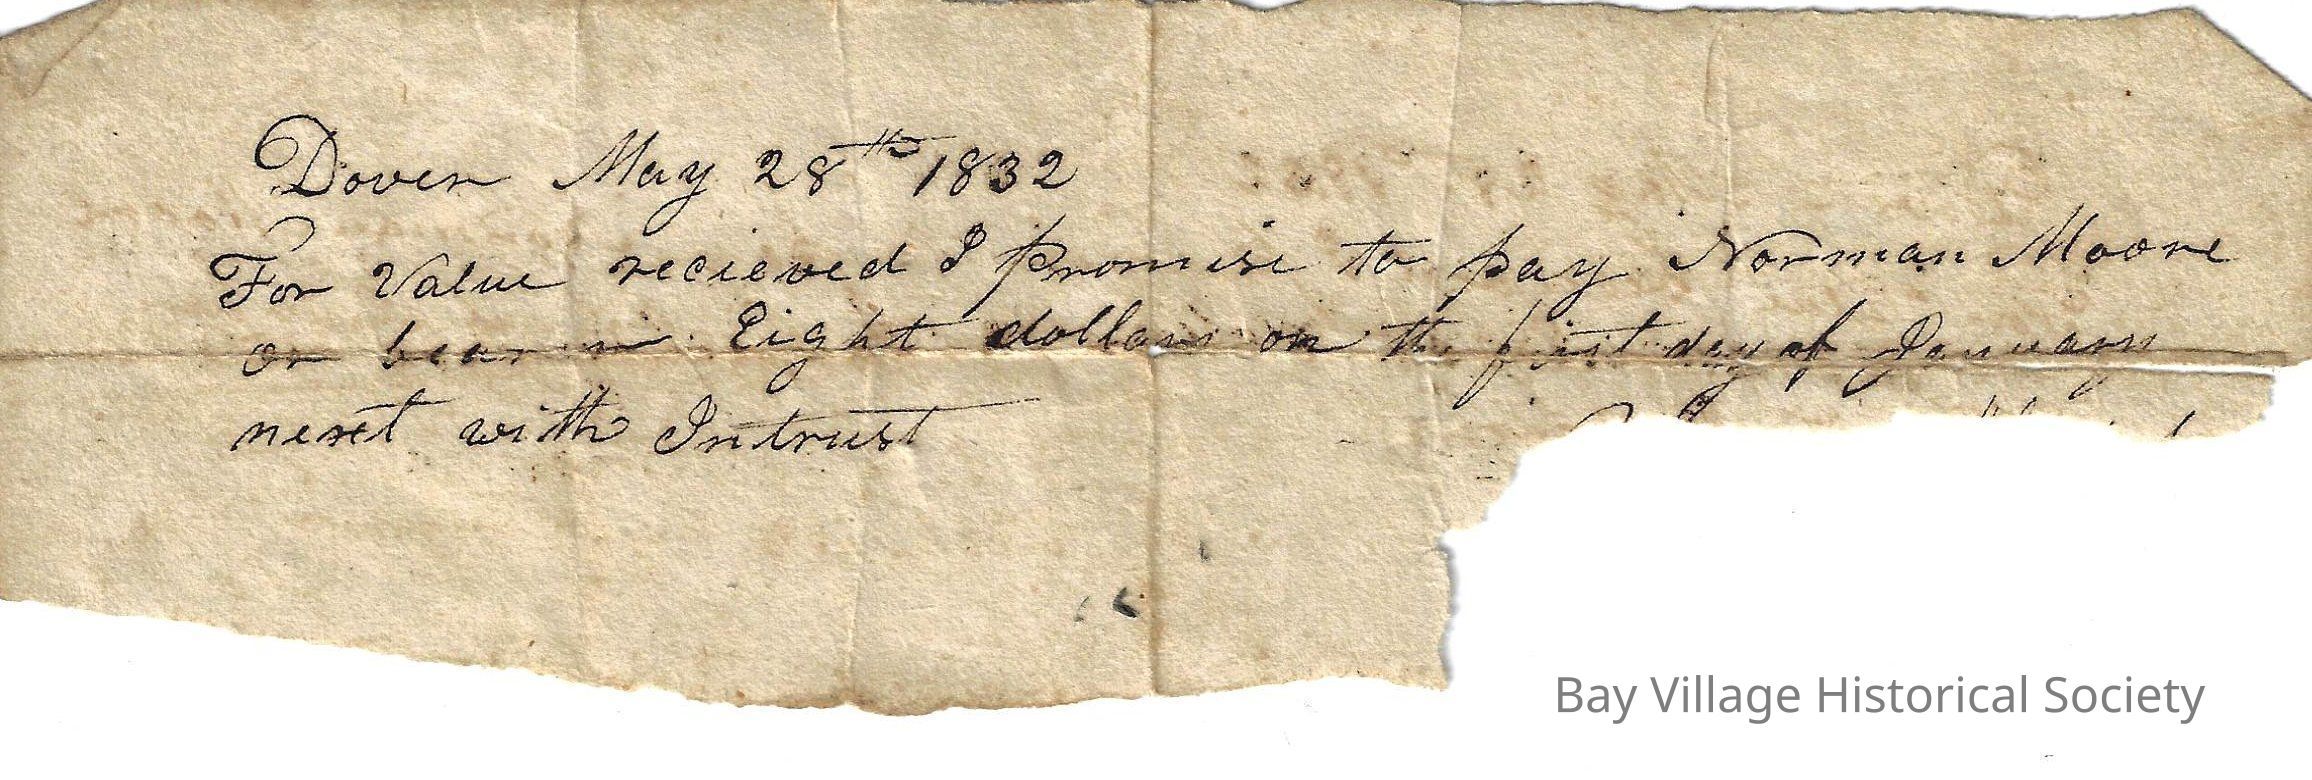 Dover May 28th 1832
For Value recieved I promise to pay Norman Moore
or bearer Eight dollars on the first day of January
next with Intrust
Bay Village Historical Society